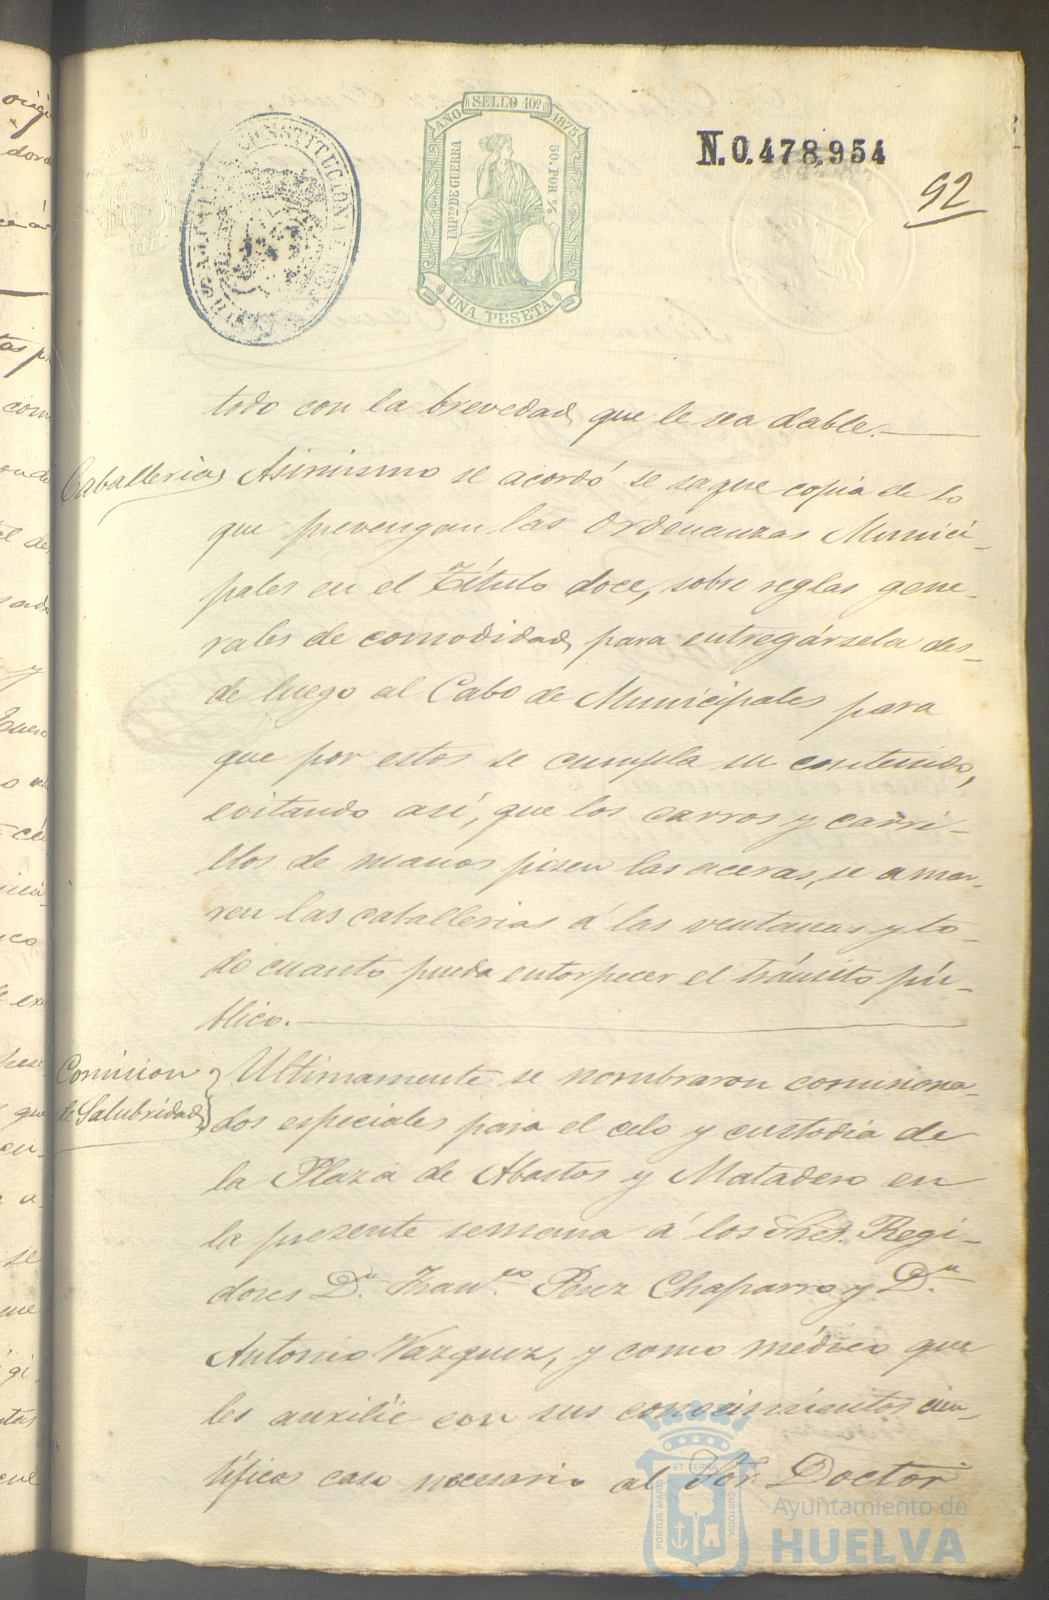 AÑO SELLO 10º 1875
IMPTO DE GUERRA
50. POR %
UNA PESETA
N.0.478,954
92
CONSTITUCIONAL
todo con la brevedad que le sea dable.
Caballerias
Asimismo se acordó se saque copia de lo
que prevengan las Ordenanzas Munici-
pales en el Título doce, sobre reglas gene-
rales de comodidad, para entregársela des-
de luego al Cabo de Municipales para
que por estos se cumpla su contenido,
evitando así, que los carros y carri-
llos de manos pisen las aceras, se amar-
ren las caballerias á las ventanas y to-
do cuanto pueda entorpecer el tránsito pú-
blico.
Comision
de Salubridad
Ultimamente se nombraron comisiona-
dos especiales para el celo y custodia de
la Plaza de Abastos y Matadero en
la presente semana á los Sres. Regi-
dores Dn. Franco. Perez Chaparro y Dn.
Antonio Vazquez, y como médico que
les auxilie con sus conocimientos cien-
tíficos caso necesario al Sor. Doctor
PORTUS MARIS ET TERRAE CUSTODIA
Ayuntamiento de
HUELVA